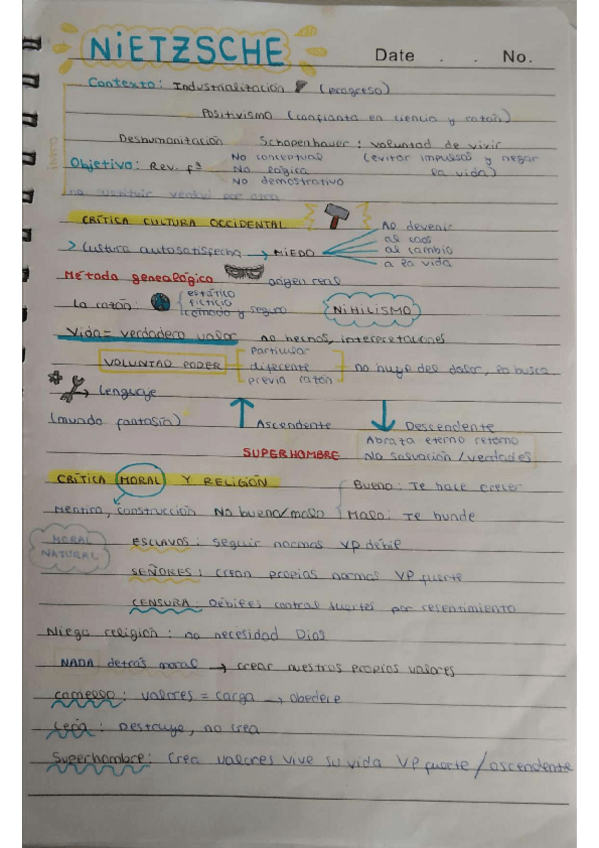 NIETZSCHE
Date . . No.
Contexto: Industrialización (progreso)
Positivismo (confianza en ciencia y razón)
Deshumanización Schopenhauer: voluntad de vivir
Objetivo: Rev. fª No conceptual (evitar impulsos y negar
No lógica la vida)
No demostrativo
no sustituir verdad por otra
CRÍTICA CULTURA OCCIDENTAL
> Cultura autosatisfecha → MIEDO
Al devenir
al caos
al cambio
a la vida
Método genealógico origen real
La razón: estático
ficticio
cómodo y seguro
NIHILISMO
Vida = verdadero valor no hechos, interpretaciones
VOLUNTAD PODER
particular
diferente
previa razón
no huye del dolor, lo busca
Lenguaje
(mundo fantasía) ↑ Ascendente ↓ Descendente
SUPERHOMBRE
Abraza eterno retorno
No salvación/verdades
CRÍTICA MORAL Y RELIGIÓN
Mentira, construcción No bueno/malo
Bueno: Te hace crecer
Malo: Te hunde
MORAL NATURAL
ESCLAVOS: seguir normas VP débil
SEÑORES: crean propias normas VP fuerte
CENSURA: Débiles contra fuertes por resentimiento
Niega religión: no necesidad Dios
NADA detrás moral → crear nuestros propios valores
camello: valores = carga → obedece
León: Destruye, no crea
Superhombre: Crea valores vive su vida VP fuerte/ascendente